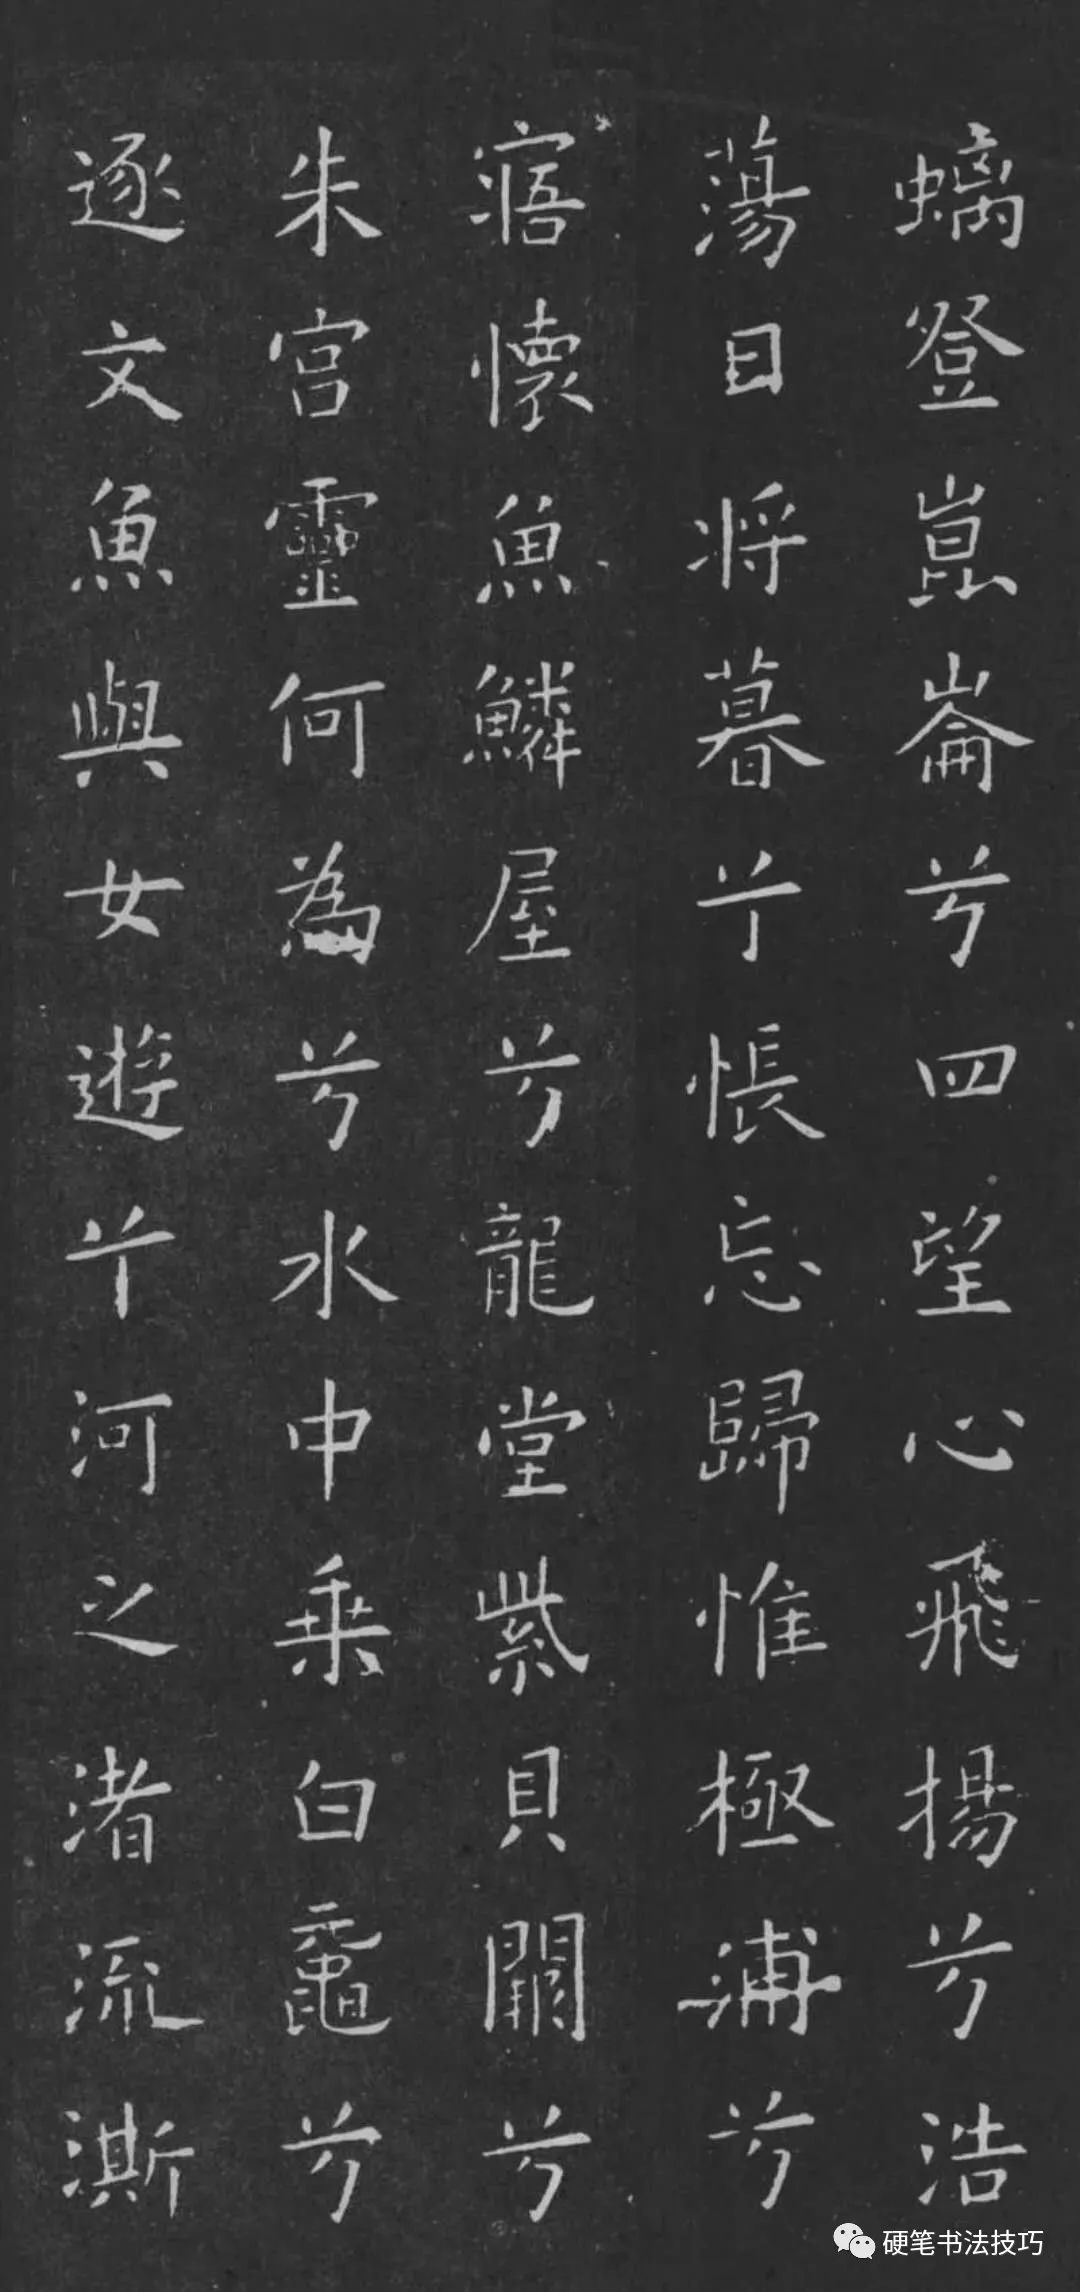 螭登崑崙兮四望心飛揚兮浩
蕩日将暮兮悵忘歸惟極浦兮
寤懷魚鱗屋兮龍堂紫貝闕兮
朱宮靈何為兮水中乗白黿兮
逐文魚與女遊兮河之渚流澌
硬笔书法技巧